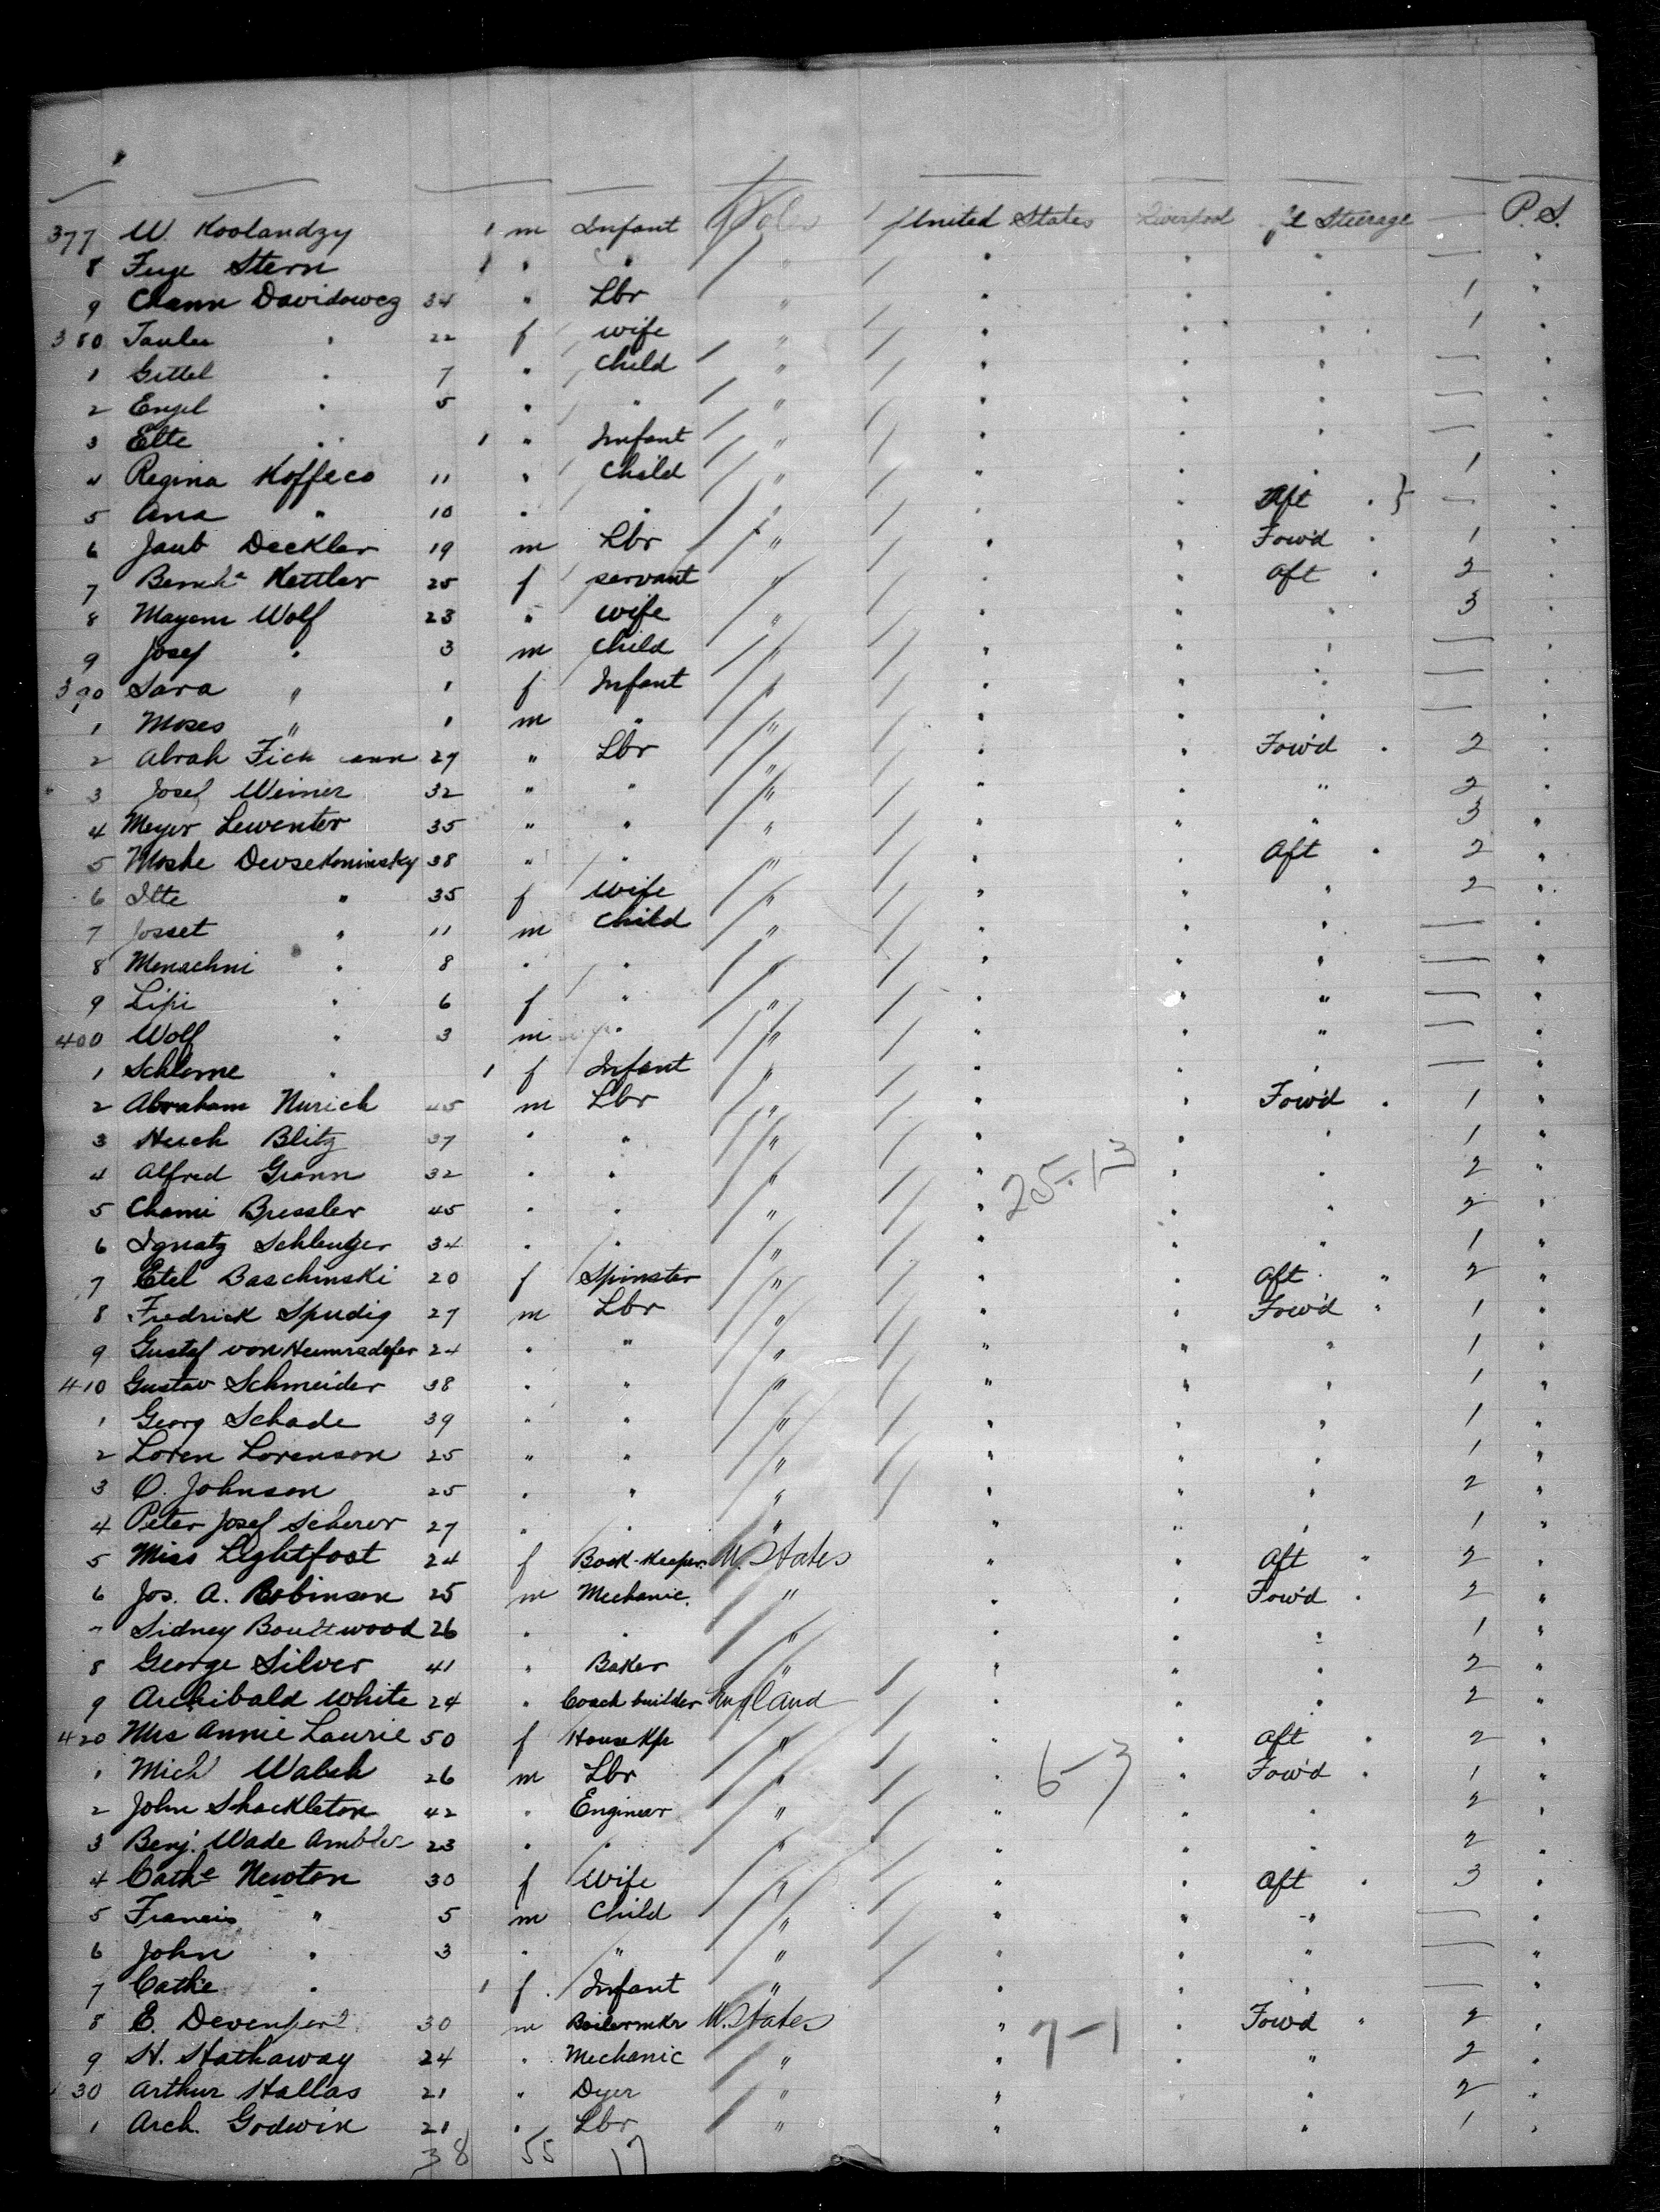 377 W. Koolandzy 1 m Infant Poles United States Liverpool Steerage — P.S.
8 Stern 1 " " " " " " — "
9 Chann Davidowcz 34 " Lbr " " " " 1 "
380 " 22 f wife " " " " 1 "
1 Gittel " 7 " Child " " " " — "
2 Engel " 5 " " " " " " — "
3 Elte " 1 " Infant " " " " — "
4 Regina Koffeco 11 " Child " " " " 1 "
5 Ana " 10 " " " " " Aft " } — "
6 Jaub Deckler 19 m Lbr " " " Fow'd " 1 "
7 Kettler 25 f servant " " " Aft " 2 "
8 Mayem Wolf 23 " wife " " " " 3 "
9 Josef " 3 m Child " " " " — "
390 Sara " 1 f Infant " " " " — "
1 Moses " 1 m " " " " " — "
2 Abrah 29 " Lbr " " " Fow'd " 2 "
3 Josef Weiner 32 " " " " " " 2 "
4 Meyer Lewenter 35 " " " " " " 3 "
5 Moshe Devsekoninsky 38 " " " " " Aft " 2 "
6 Ilte " 35 f wife " " " " 2 "
7 Josset " 11 m Child " " " " — "
8 Menachni " 8 " " " " " " — "
9 Lipi " 6 f " " " " " — "
400 Wolf " 3 m " " " " " — "
1 Schlome " 1 f Infant " " " " — "
2 Abraham Nurich 45 m Lbr " " " Fow'd " 1 "
3 Hersch Blitz 37 " " " " " " 1 "
4 Alfred Grann 32 " " " " 25-13 " " 2 "
5 Chami Bressler 45 " " " " " " 2 "
6 Ignatz Schlenger 34 " " " " " " 1 "
7 Etel Baschinski 20 f Spinster " " " Aft " 2 "
8 Fredrick Spudig 27 m Lbr " " " Fow'd " 1 "
9 Gustaf von 24 " " " " " " 1 "
410 Gustav Schneider 38 " " " " " " 1 "
1 Georg Schade 39 " " " " " " 1 "
2 Loren Lorenson 25 " " " " " " 1 "
3 O. Johnson 25 " " " " " " 2 "
4 Peter Josef Scherer 27 " " " " " " 1 "
5 Miss Lightfoot 24 f Book-Keeper U. States " " Aft " 2 "
6 Jos. A. Robinson 25 m Mechanic " " " Fow'd " 2 "
7 Sidney Boultwood 26 " " " " " " 1 "
8 George Silver 41 " Baker " " " " 2 "
9 Archibald White 24 " Coach builder England " " " 2 "
420 Mrs Annie Laurie 50 f House Kpr " " " Aft " 2 "
1 Mich Walsh 26 m Lbr " " 6-3 " Fow'd " 1 "
2 John Shackleton 42 " Engineer " " " " 2 "
3 Benj. Wade Ambler 23 " " " " " " 2 "
4 Cathe Newton 30 f Wife " " " Aft " 3 "
5 Francis " 5 m Child " " " " — "
6 John " 3 " " " " " " — "
7 Cathe " 1 f Infant " " " " — "
8 E. Devenport 30 m Boilermkr U. States " 7-1 " Fow'd " 2 "
9 H. Hathaway 24 " Mechanic " " " " 2 "
430 Arthur Hallas 21 " Dyer " " " " 2 "
1 Arch. Godwin 21 " Lbr " " " " 1 "
38 55 17